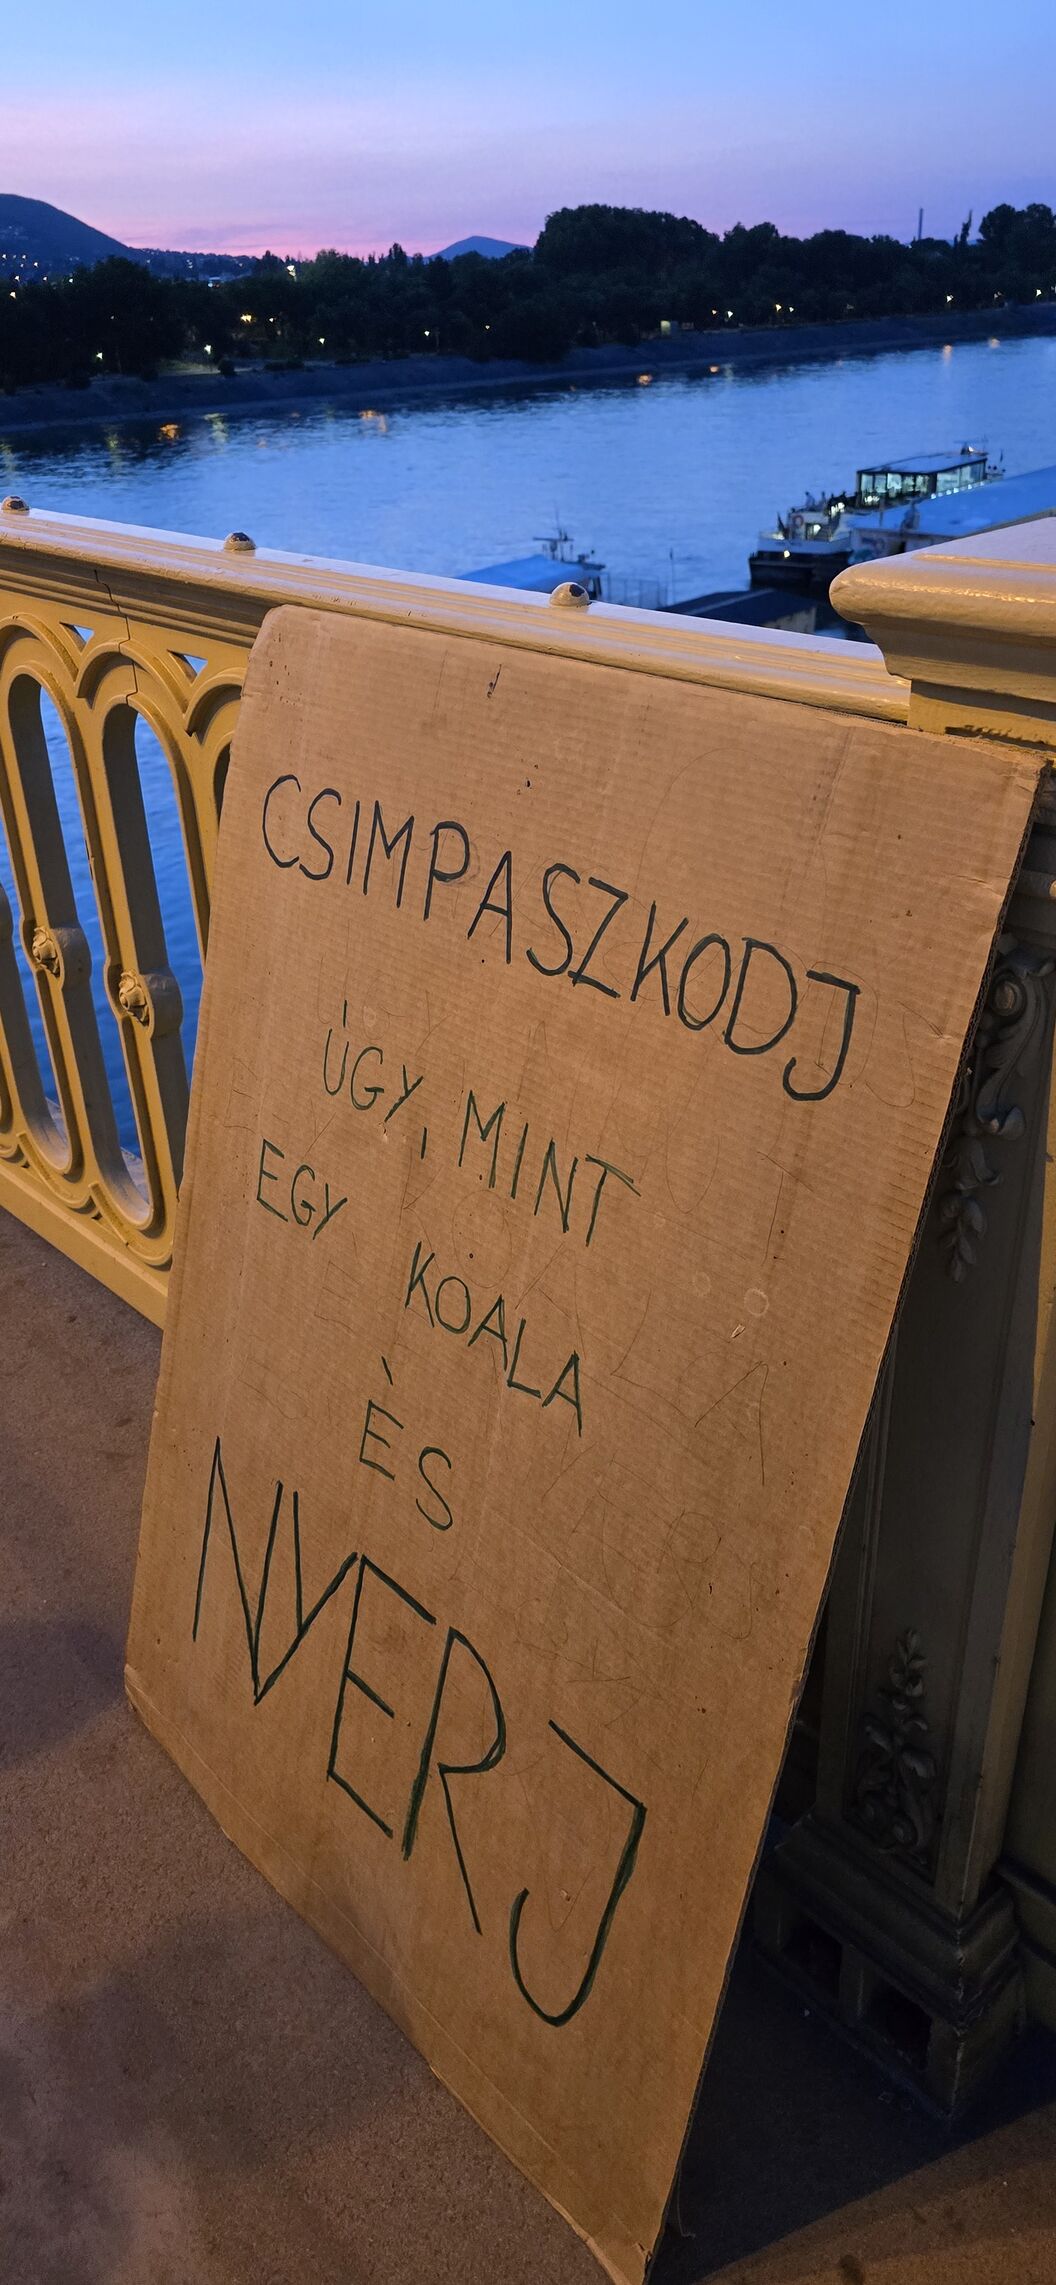 CSIMPASZKODJ
ÚGY, MINT
EGY KOALA
ÉS
NYERJ